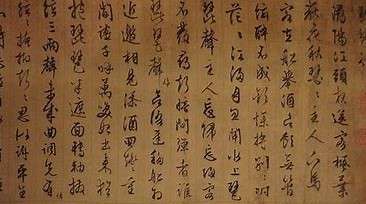 潯陽江頭夜送客楓葉
荻花秋瑟瑟主人下馬
客在船舉酒欲飲無管
絃醉不成歡慘將別別時
茫茫江浸月忽聞水上琵
琶聲主人忘歸客不
發尋聲暗問彈者誰
琵琶聲停欲語遲移船相
近邀相見添酒回燈重
開宴千呼萬喚始出來猶抱
琵琶半遮面轉軸撥
絃三兩聲未成曲調先有情
絃絃掩抑聲聲思似訴平生